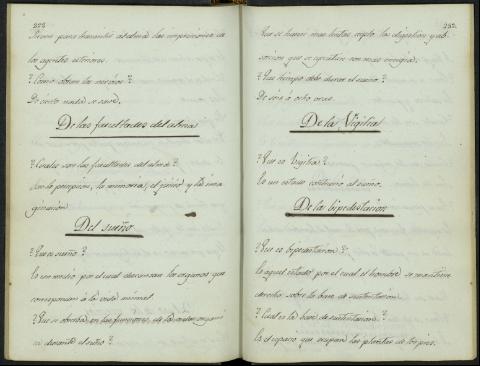 222
Sirven para transmitir al alma las impresiones de
los agentes esteriores.
? Como obran los nervios?
De cierto nada se save.
De las facultades del alma
? Cuales son las facultades del alma?
Son la percepcion, la memoria, el juicio y la ima
ginacion
Del sueño
? Que es sueño?
Es un medio por el cual descansan los organos que
corresponden á la vida animal
? Que se observa en las funciones de la vida organi
ca durante el sueño?
Que se hacen mas lentas, septo, las digestion y ab
sorcion que se ejecutan con mas energia.
? Que tiempo debe durar el sueño?
De seis á ocho oras.
De la Vigilia
? Que es Vigilia?
Es un estado contrario al sueño.
De la bipedestacion
? Que es bipedestacion?
Es aquel estado por el cual el hombre se mantiene
derecho sobre la base de sustentacion.
? Cual es la base de sustentacion?
Es el espacio que ocupan las plantas de los pies.